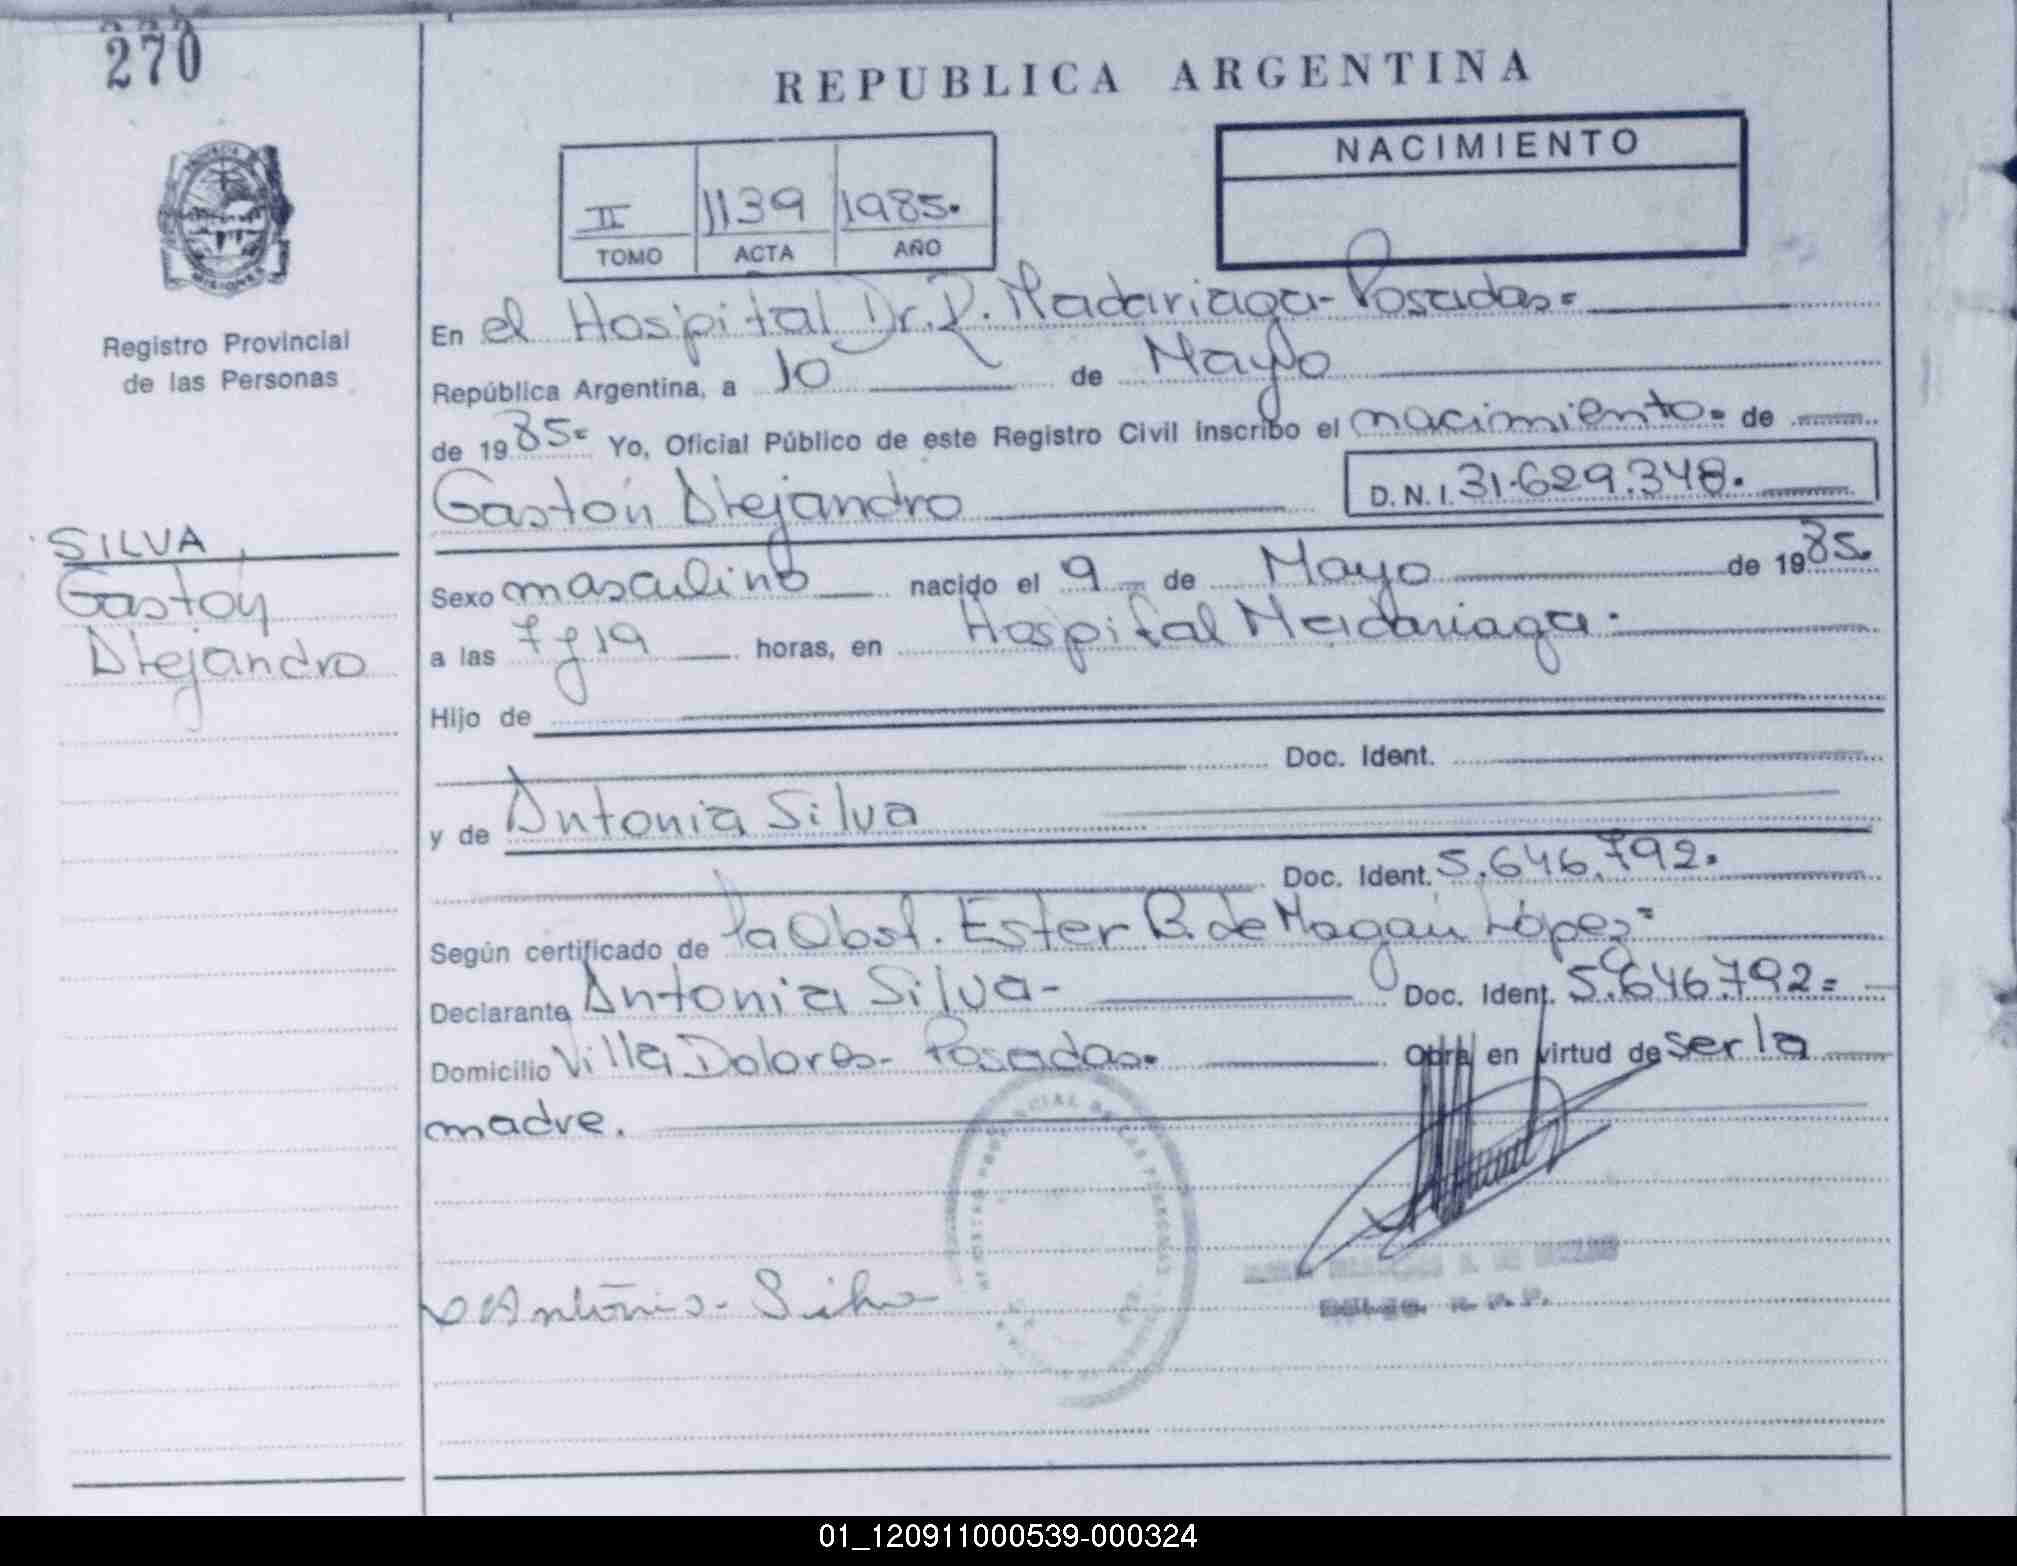 270
REPUBLICA ARGENTINA
II 1139 1985.
TOMO ACTA AÑO
NACIMIENTO
Registro Provincial
de las Personas
SILVA
Gastón
Alejandro
En el Hospital Dr. R. Madariaga - Posadas=
República Argentina, a 10 de Mayo
de 1985= Yo, Oficial Público de este Registro Civil inscribo el nacimiento= de
Gastón Alejandro D.N.I. 31.629.348.
Sexo masculino nacido el 9 de Mayo de 1985.
a las 7 y 19 horas, en Hospital Madariaga.
Hijo de
Doc. Ident.
y de Antonia Silva
Doc. Ident. 5.646.792.
Según certificado de la Obst. Ester B. de Magan López=
Declarante Antonia Silva- Doc. Ident. 5.646.792=
Domicilio Villa Dolores- Posadas. Obra en virtud de ser la
madre.
REGISTRO PROVINCIAL DE LAS PERSONAS
Antonia Silva
R. P. P.
01_120911000539-000324